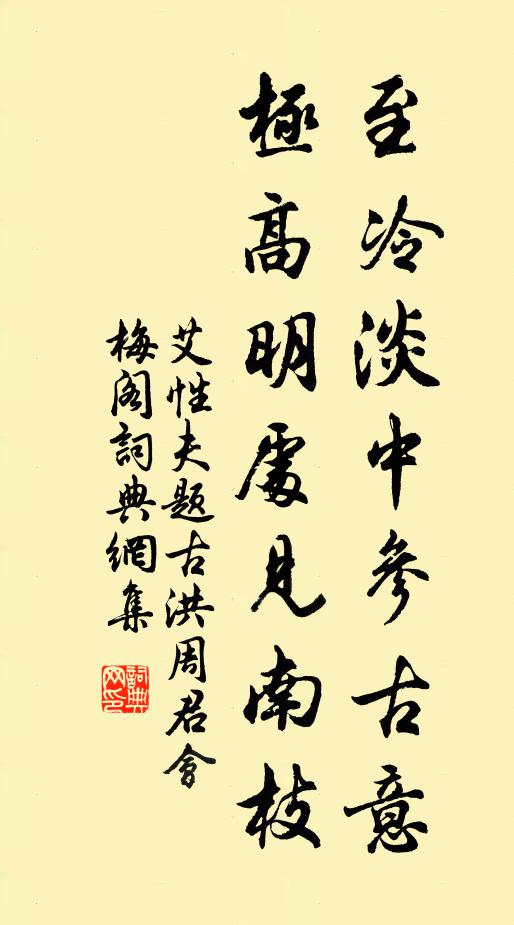 至冷淡中參古意
極高明處見南枝
艾性夫題古洪周君會
梅閣詞典網集
詞典網印